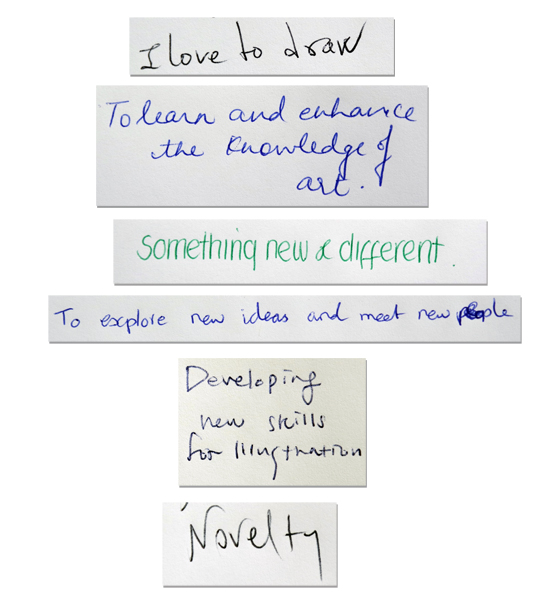 I love to draw
To learn and enhance
the knowledge of
art.
Something new & different.
To explore new ideas and meet new people
Developing
new skills
for Illustration
Novelty